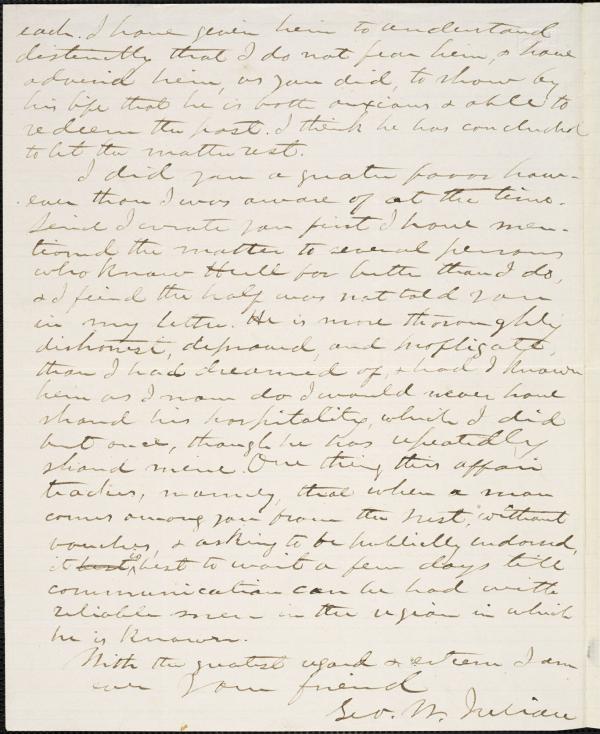 each. I have given him to understand
distinctly that I do not fear him, & have
advised him, as you did, to show by
his life that he is both anxious & able to
redeem the past. I think he has concluded
to let the matter rest.
I did you a greater favor how-
ever than I was aware of at the time.
Since I wrote you first I have men-
tioned the matter to several persons
who know Hull far better than I do,
& I find the half was not told you
in my letter. He is more thoroughly
dishonest, depraved, and profligate,
than I had dreamed of, & had I known
him as I now do I would never have
shared his hospitality, which I did
but once, though he has repeatedly
shared mine. One thing this affair
teaches, namely, that when a man
comes among you from the West, without
vouchers, & asking to be publicly endorsed,
it is best to wait a few days till
communication can be had with
reliable men in the region in which
he is known.
With the greatest regard & esteem I am
ever your friend
Geo. W. Julian